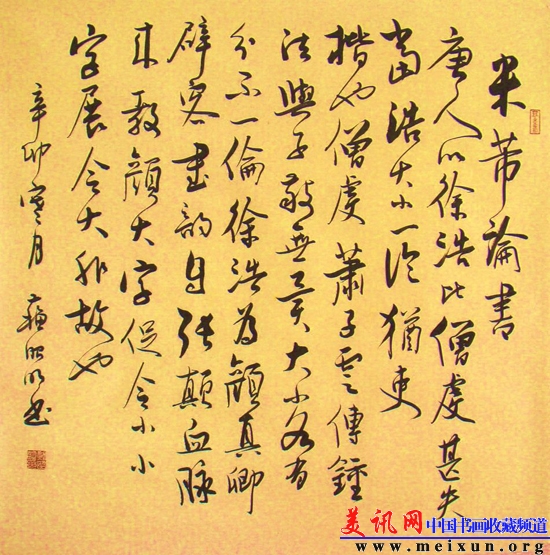 米芾論書
唐人以徐浩比僧虔甚失
當浩大小一倫猶吏
楷也僧虔蕭子雲傳鍾
法與子敬無異大小各有
分不一倫徐浩為顔真卿
辟客書韵自張顛血脉
来教顔大字促令小小
字展令大非故也
辛卯寒月
美讯网 中国书画收藏频道
www.meixun.org